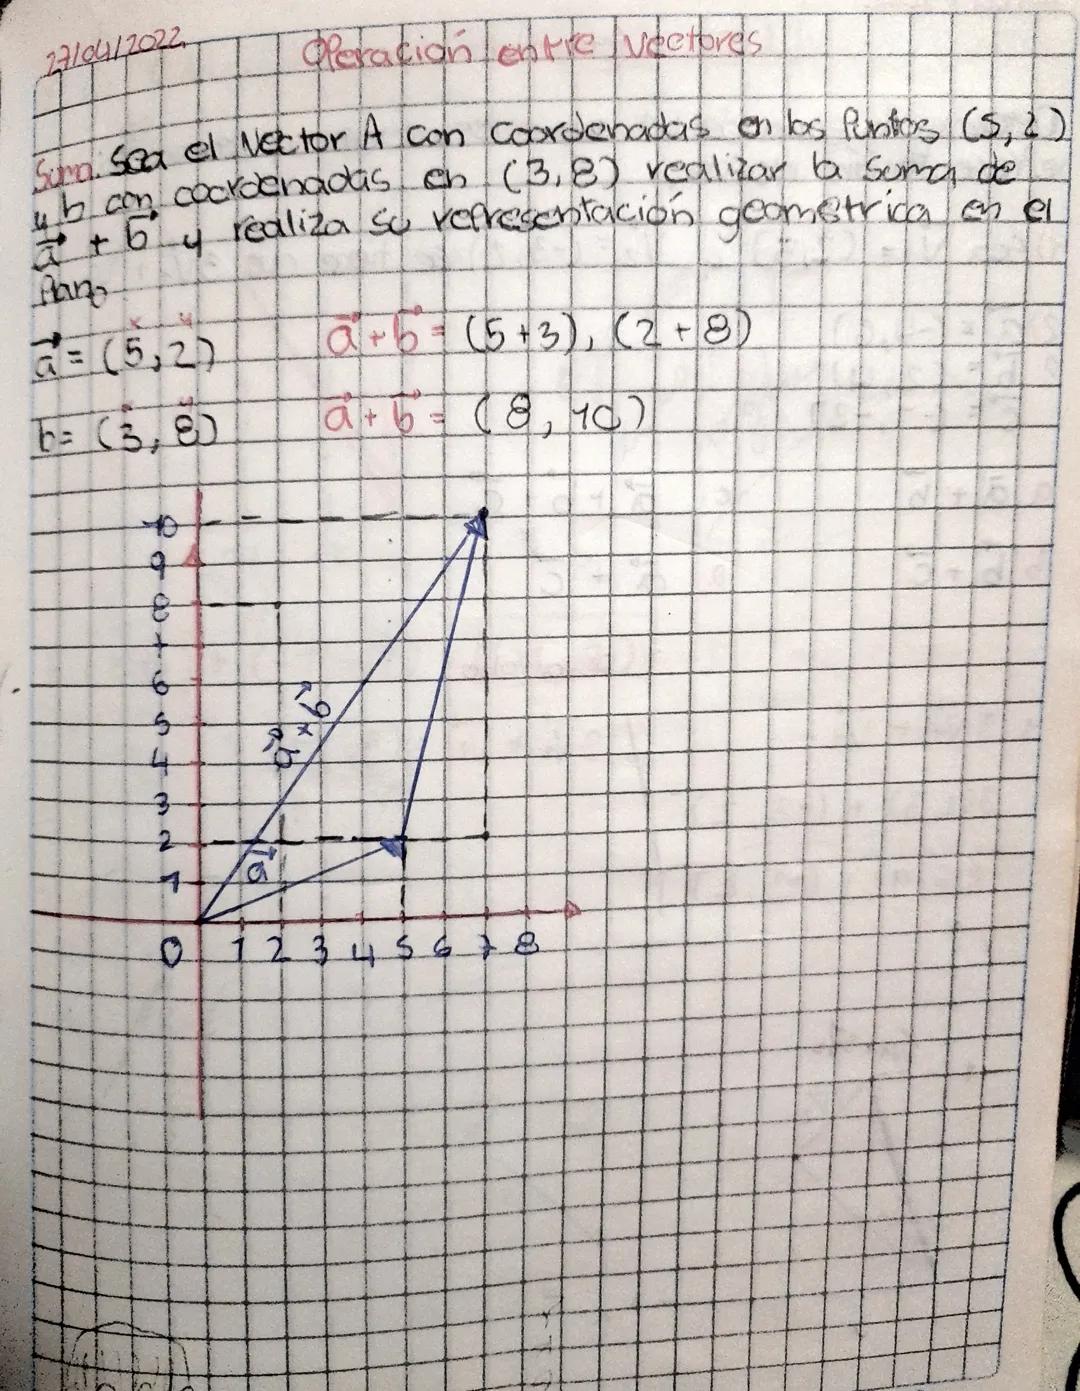 27/04/2022
Operación entre Vectores
Suma. Sea el Vector A con coordenadas en los Puntos (5,2)
y b con coordenadas en (3,8) realizar la suma de
a + b y realiza su representación geométrica en el
Plano
a = (5,2)
a + b = (5+3), (2+8)
b = (3,8)
a + b = (8,10)
10
9
8
7
6
5
4
3
2
1
a + b
a
0 1 2 3 4 5 6 7 8